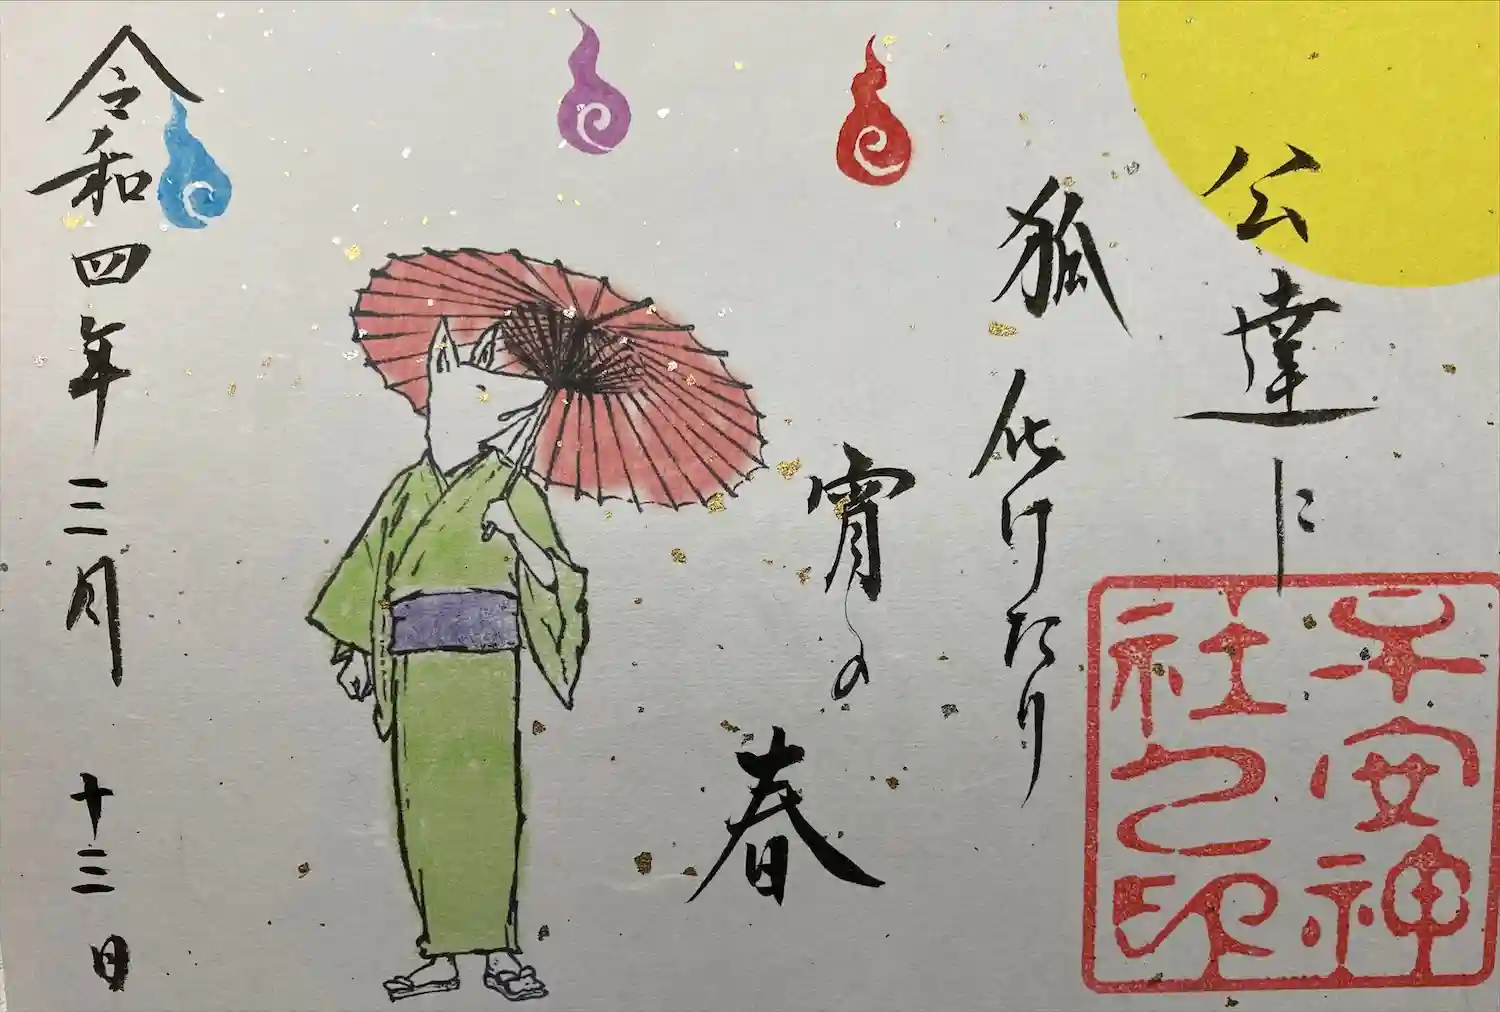 公達に
狐化けたり
宵の
春
子安神
社之印
令和四年三月十三日